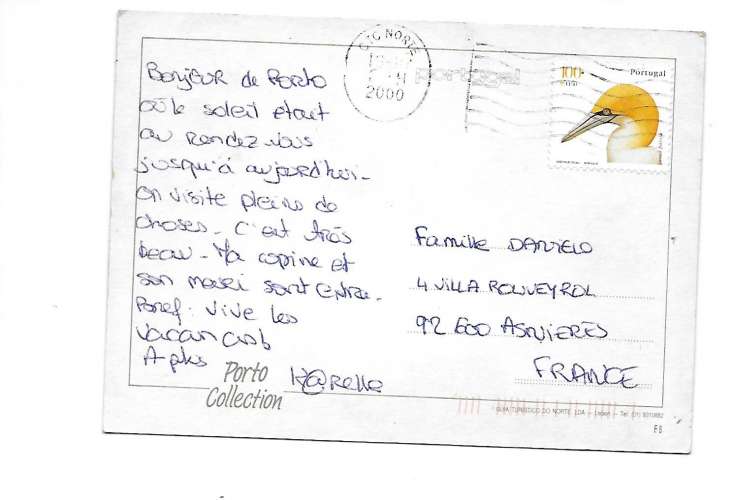 BONJOUR de PORTO
où le soleil était
au rendez-vous
jusqu'à aujourd'hui -
on visite pleins de
choses - C'est très
beau - Ma copine et
son mari sont
Bref. Vive les

A plus
K@relle
Porto
Collection
CTC NORTE
2000
portugal
100
Portugal
Famille DANIELO
4 VILLA ROUVEYROL
92 600 ASNIERES
FRANCE
GUIA TURISTICO DO NORTE LDA
E6